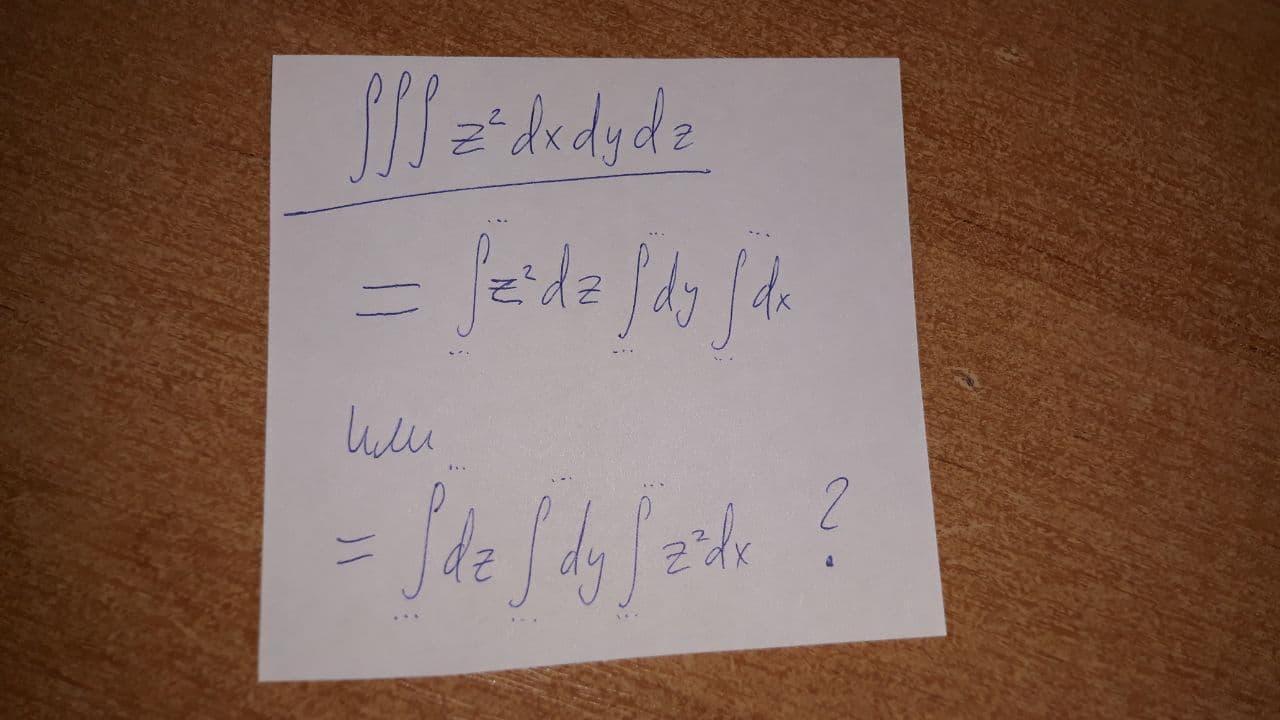 ∫∫∫ z² dx dy dz
= ∫ z² dz ∫ dy ∫ dx
или
= ∫ dz ∫ dy ∫ z² dx ?